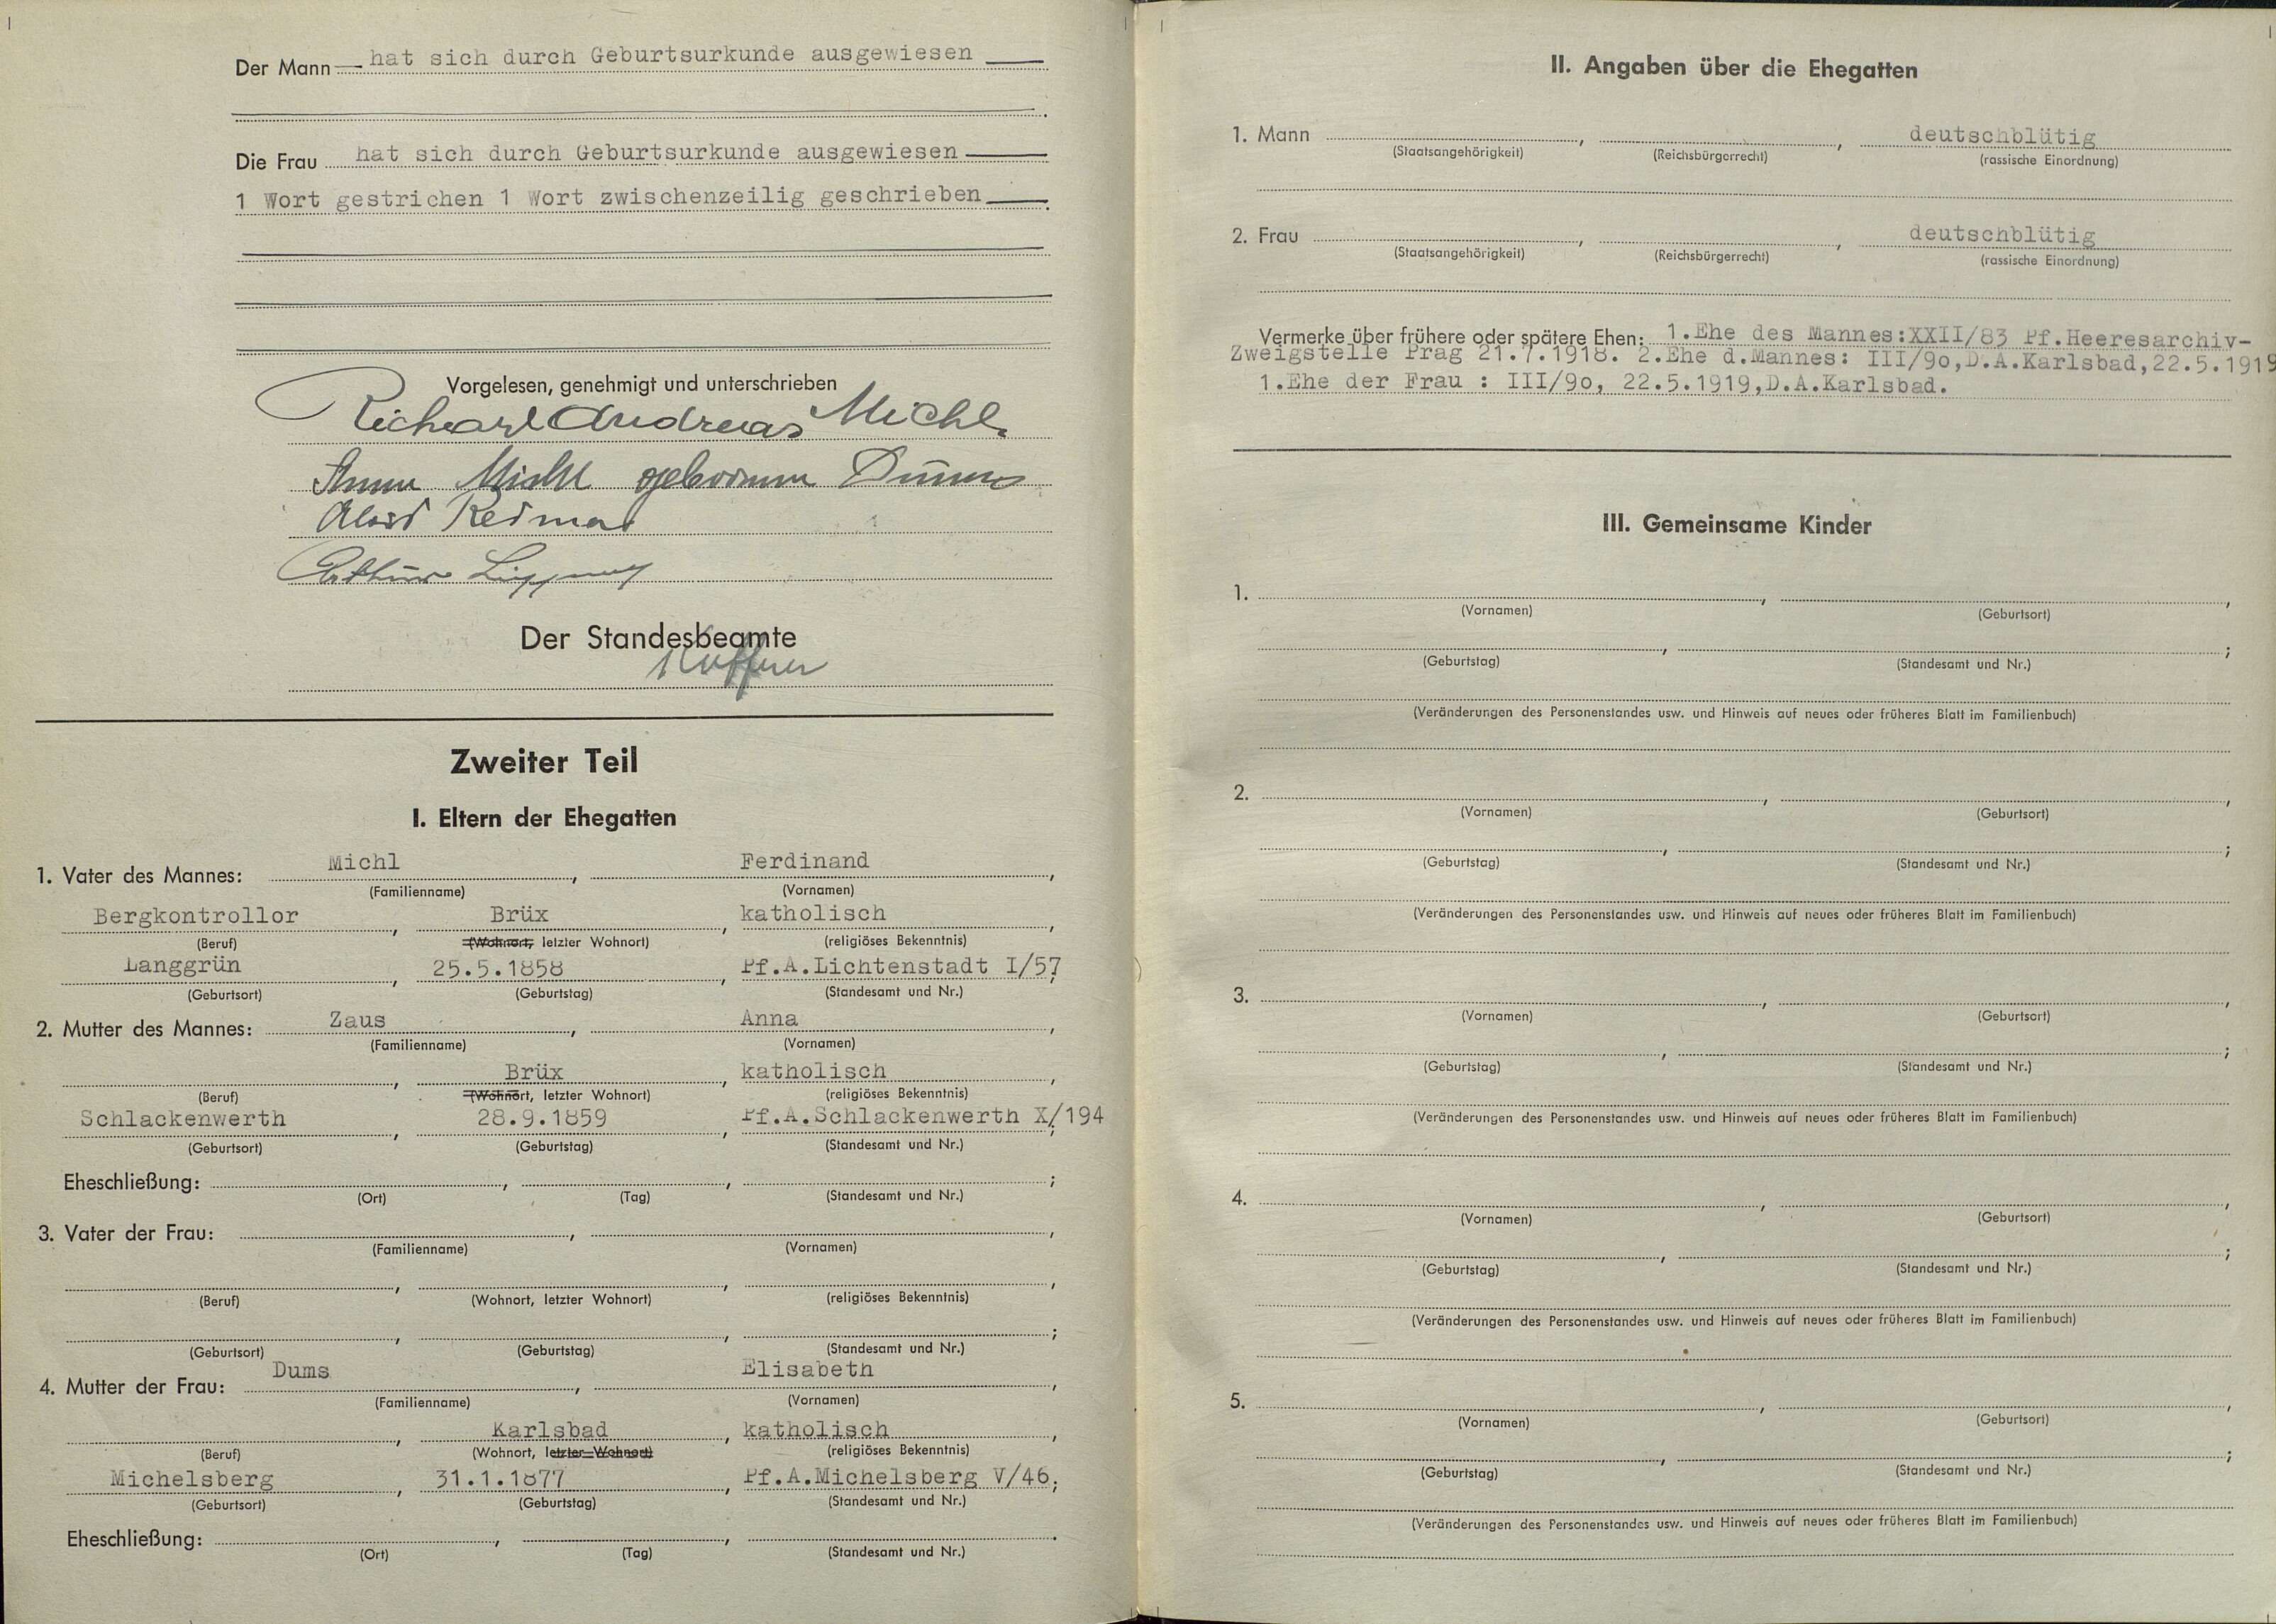 Der Mann — hat sich durch Geburtsurkunde ausgewiesen
Die Frau hat sich durch Geburtsurkunde ausgewiesen
1 Wort gestrichen 1 Wort zwischenzeilig geschrieben
Vorgelesen, genehmigt und unterschrieben
Richard Andreas Michl.
Anna Michl geborenne Dums
Arthur
Der Standesbeamte
Zweiter Teil
I. Eltern der Ehegatten
1. Vater des Mannes: Michl, Ferdinand,
(Familienname) (Vornamen)
Bergkontrollor, Brüx, katholisch,
(Beruf) (Wohnort, letzter Wohnort) (religiöses Bekenntnis)
Langgrün, 25.5.1858, Pf.A.Lichtenstadt I/57;
(Geburtsort) (Geburtstag) (Standesamt und Nr.)
2. Mutter des Mannes: Zaus, Anna,
(Familienname) (Vornamen)
, Brüx, katholisch,
(Beruf) (Wohnort, letzter Wohnort) (religiöses Bekenntnis)
Schlackenwerth, 28.9.1859, Pf.A.Schlackenwerth X/194;
(Geburtsort) (Geburtstag) (Standesamt und Nr.)
Eheschließung: , , ;
(Ort) (Tag) (Standesamt und Nr.)
3. Vater der Frau: , ,
(Familienname) (Vornamen)
, , ,
(Beruf) (Wohnort, letzter Wohnort) (religiöses Bekenntnis)
, , ;
(Geburtsort) (Geburtstag) (Standesamt und Nr.)
4. Mutter der Frau: Dums, Elisabeth,
(Familienname) (Vornamen)
, Karlsbad, katholisch,
(Beruf) (Wohnort, letzter Wohnort) (religiöses Bekenntnis)
Michelsberg, 31.1.1877, Pf.A.Michelsberg V/46;
(Geburtsort) (Geburtstag) (Standesamt und Nr.)
Eheschließung: , , .
(Ort) (Tag) (Standesamt und Nr.)
II. Angaben über die Ehegatten
1. Mann , , deutschblütig
(Staatsangehörigkeit) (Reichsbürgerrecht) (rassische Einordnung)
2. Frau , , deutschblütig
(Staatsangehörigkeit) (Reichsbürgerrecht) (rassische Einordnung)
Vermerke über frühere oder spätere Ehen: 1.Ehe des Mannes:XXII/83 Pf.Heeresarchiv-
Zweigstelle Prag 21.7.1918. 2.Ehe d.Mannes: III/9o,D.A.Karlsbad,22.5.1919
1.Ehe der Frau : III/9o, 22.5.1919,D.A.Karlsbad.
III. Gemeinsame Kinder
1. , ,
(Vornamen) (Geburtsort)
, ;
(Geburtstag) (Standesamt und Nr.)
(Veränderungen des Personenstandes usw. und Hinweis auf neues oder früheres Blatt im Familienbuch)
2. , ,
(Vornamen) (Geburtsort)
, ;
(Geburtstag) (Standesamt und Nr.)
(Veränderungen des Personenstandes usw. und Hinweis auf neues oder früheres Blatt im Familienbuch)
3. , ,
(Vornamen) (Geburtsort)
, ;
(Geburtstag) (Standesamt und Nr.)
(Veränderungen des Personenstandes usw. und Hinweis auf neues oder früheres Blatt im Familienbuch)
4. , ,
(Vornamen) (Geburtsort)
, ;
(Geburtstag) (Standesamt und Nr.)
(Veränderungen des Personenstandes usw. und Hinweis auf neues oder früheres Blatt im Familienbuch)
5. , ,
(Vornamen) (Geburtsort)
, ;
(Geburtstag) (Standesamt und Nr.)
(Veränderungen des Personenstandes usw. und Hinweis auf neues oder früheres Blatt im Familienbuch)